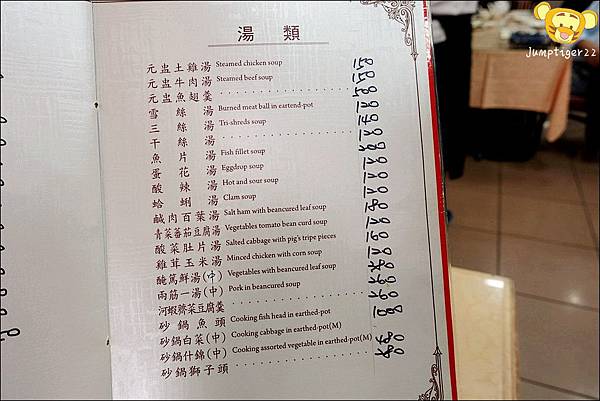 Jumptiger22
湯 類
元盅土雞湯 Steamed chicken soup
元盅牛肉湯 Steamed beef soup
元盅魚翅羹
雪絲湯 Burned meat ball in eartend-pot
三絲湯 Tri-shreds soup
干絲湯
魚片湯 Fish fillet soup
蛋花湯 Eggdrop soup
酸辣湯 Hot and sour soup
蛤蜊湯 Clam soup
鹹肉百葉湯 Salt ham with beancured leaf soup
青菜蕃茄豆腐湯 Vegetables tomato bean curd soup
酸菜肚片湯 Salted cabbage with pig's tripe pieces
雞茸玉米湯 Minced chicken with corn soup
醃篤鮮湯(中) Vegetables with beancured leaf soup
兩筋一湯(中) Pork in beancured soup
河蝦薺菜豆腐羹
砂鍋魚頭 Cooking fish head in earthed-pot
砂鍋白菜(中) Cooking cabbage in earthed-pot(M)
砂鍋什錦(中) Cooking assorted vegetable in earthed-pot(M)
砂鍋獅子頭